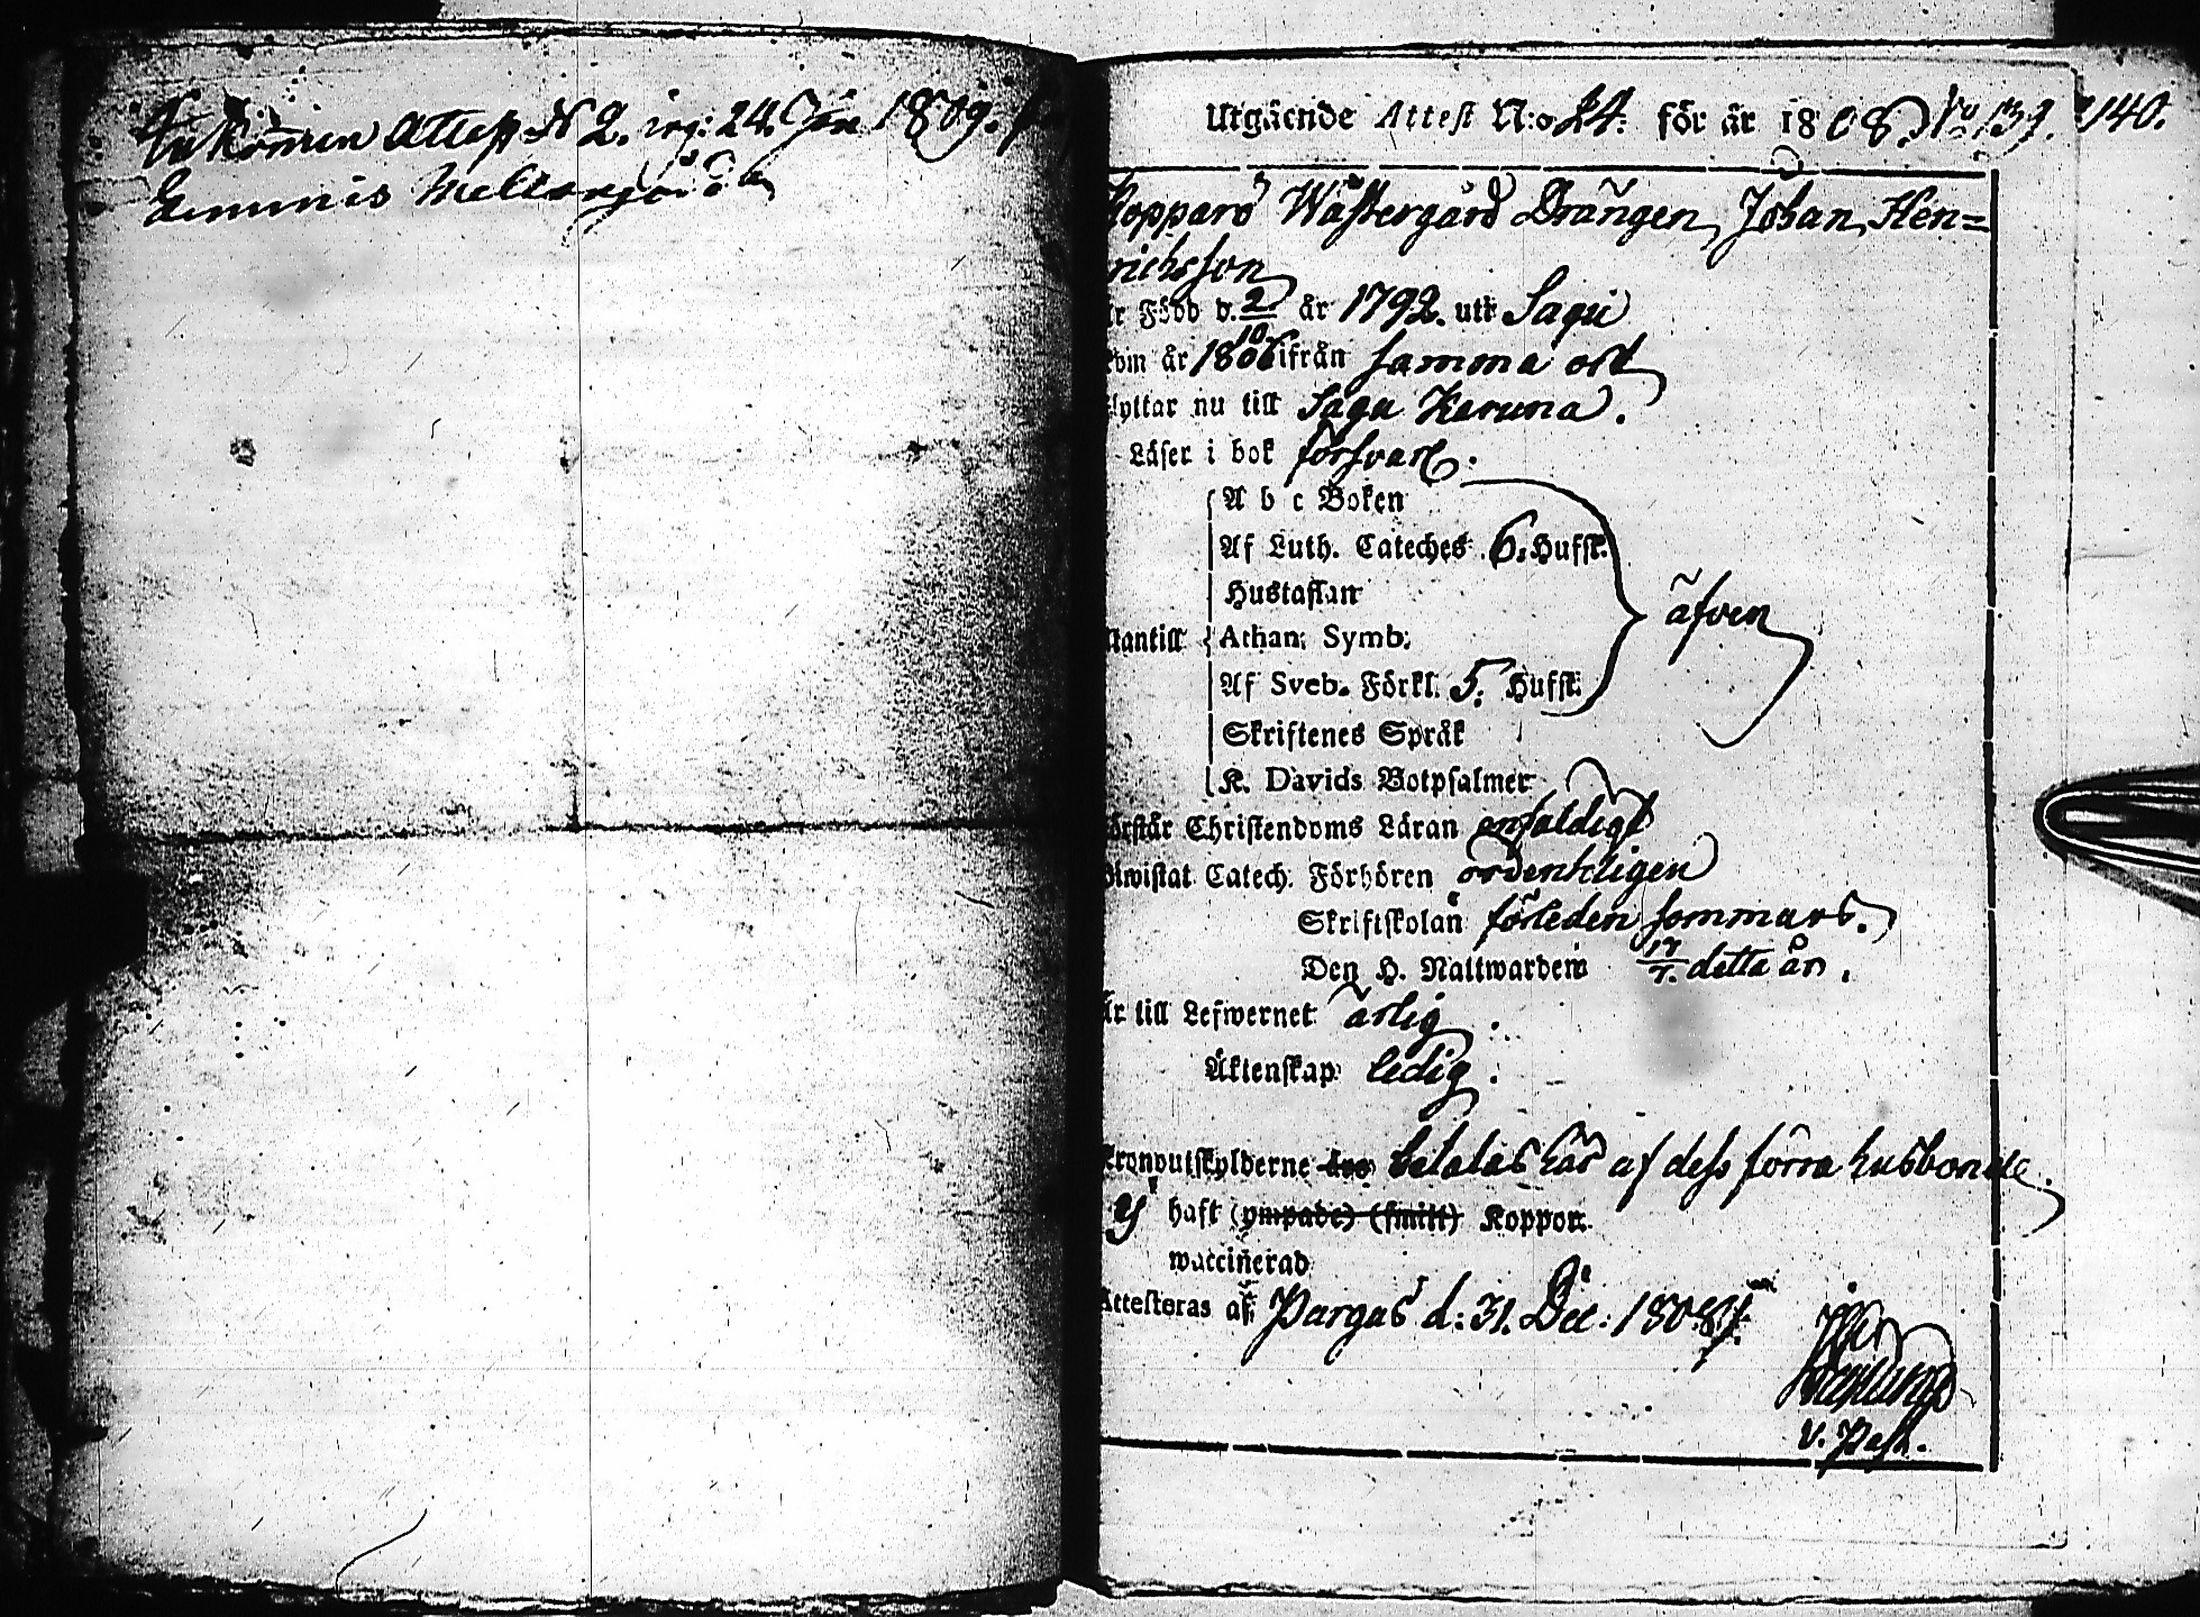 Inkommen Attest N 2. 24. 1809.
Utgående Attest N:o 24. för år 1808. No 139. 140.
Koppar Wästergård Drängen Johan Hen=
richsson
är Född d. 2/10 år 1792. uti Sagu
kom år 1806 ifrån samma ort
flyttar nu till Sagu Karuna.
Läser i bok försvarl.
A b c Boken
Af Luth. Cateches 6. Hufst.
Hustaflan
utantill Athan. Symb.
äfven
Af Sveb. Förkl. 5. Hufst.
Skriftenes Språk
K. Davids Botpsalmer
förstår Christendoms Läran enfaldigt
Biwistat Catech. Förhören ordentligen
Skriftskolan förleden sommars.
Den H. Nattwarden 17/7. detta år.
Är till Lefwernet ärlig
Äktenskap ledig.
Kronoutskylderne betalas här af dess förra husbonde.
Ej haft (ympade) (smitt) Koppor.
waccinerad
Attesteras af Pargas d: 31. Dec: 1808.
v. Past.